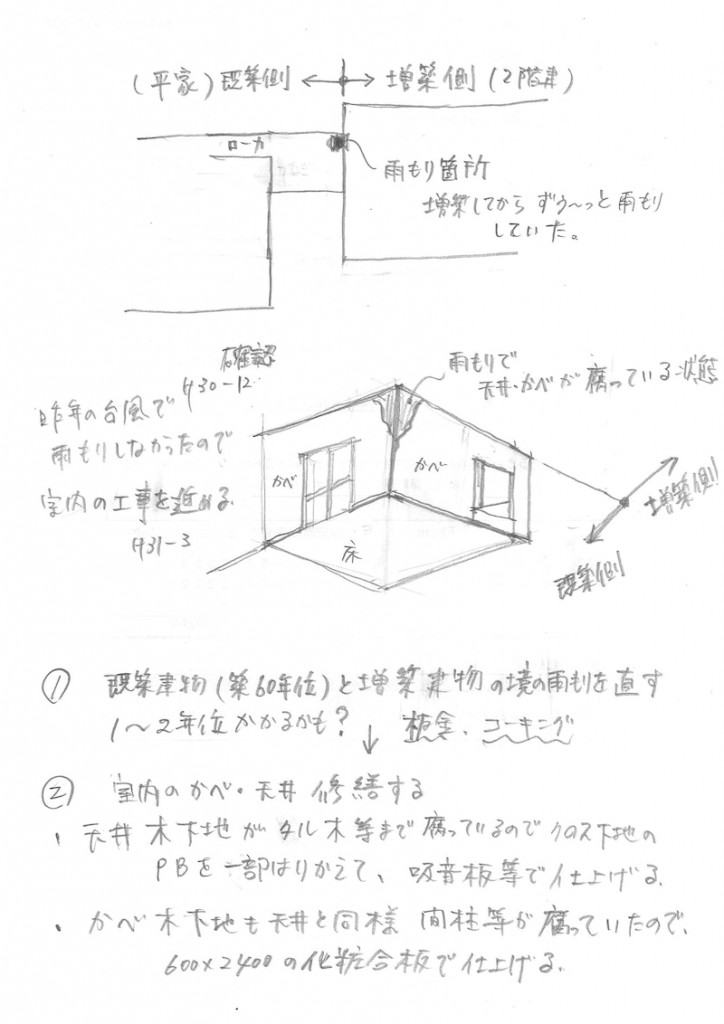 (平家)既築側 ←→ 増築側(2階建)
ローカ
雨もり箇所
増築してから ずう〜っと雨もり
していた。
確認
H30-12
昨年の台風で
雨もりしなかったので
室内の工事を進める
H31-3
雨もりで
天井・かべが腐っている状態
かべ
かべ
床
増築側
既築側
① 既築建物(築60年位)と増築建物の境の雨もりを直す
1〜2年位かかるかも? ↓ 板金、コーキング
② 室内のかべ・天井 修繕する
、天井 木下地が タル木等まで腐っているので クロス下地の
PBを一部はりかえて、吸音板等で仕上げる。
、かべ 木下地も天井と同様 間柱等が腐っていたので、
600×2400の化粧合板で仕上げる。